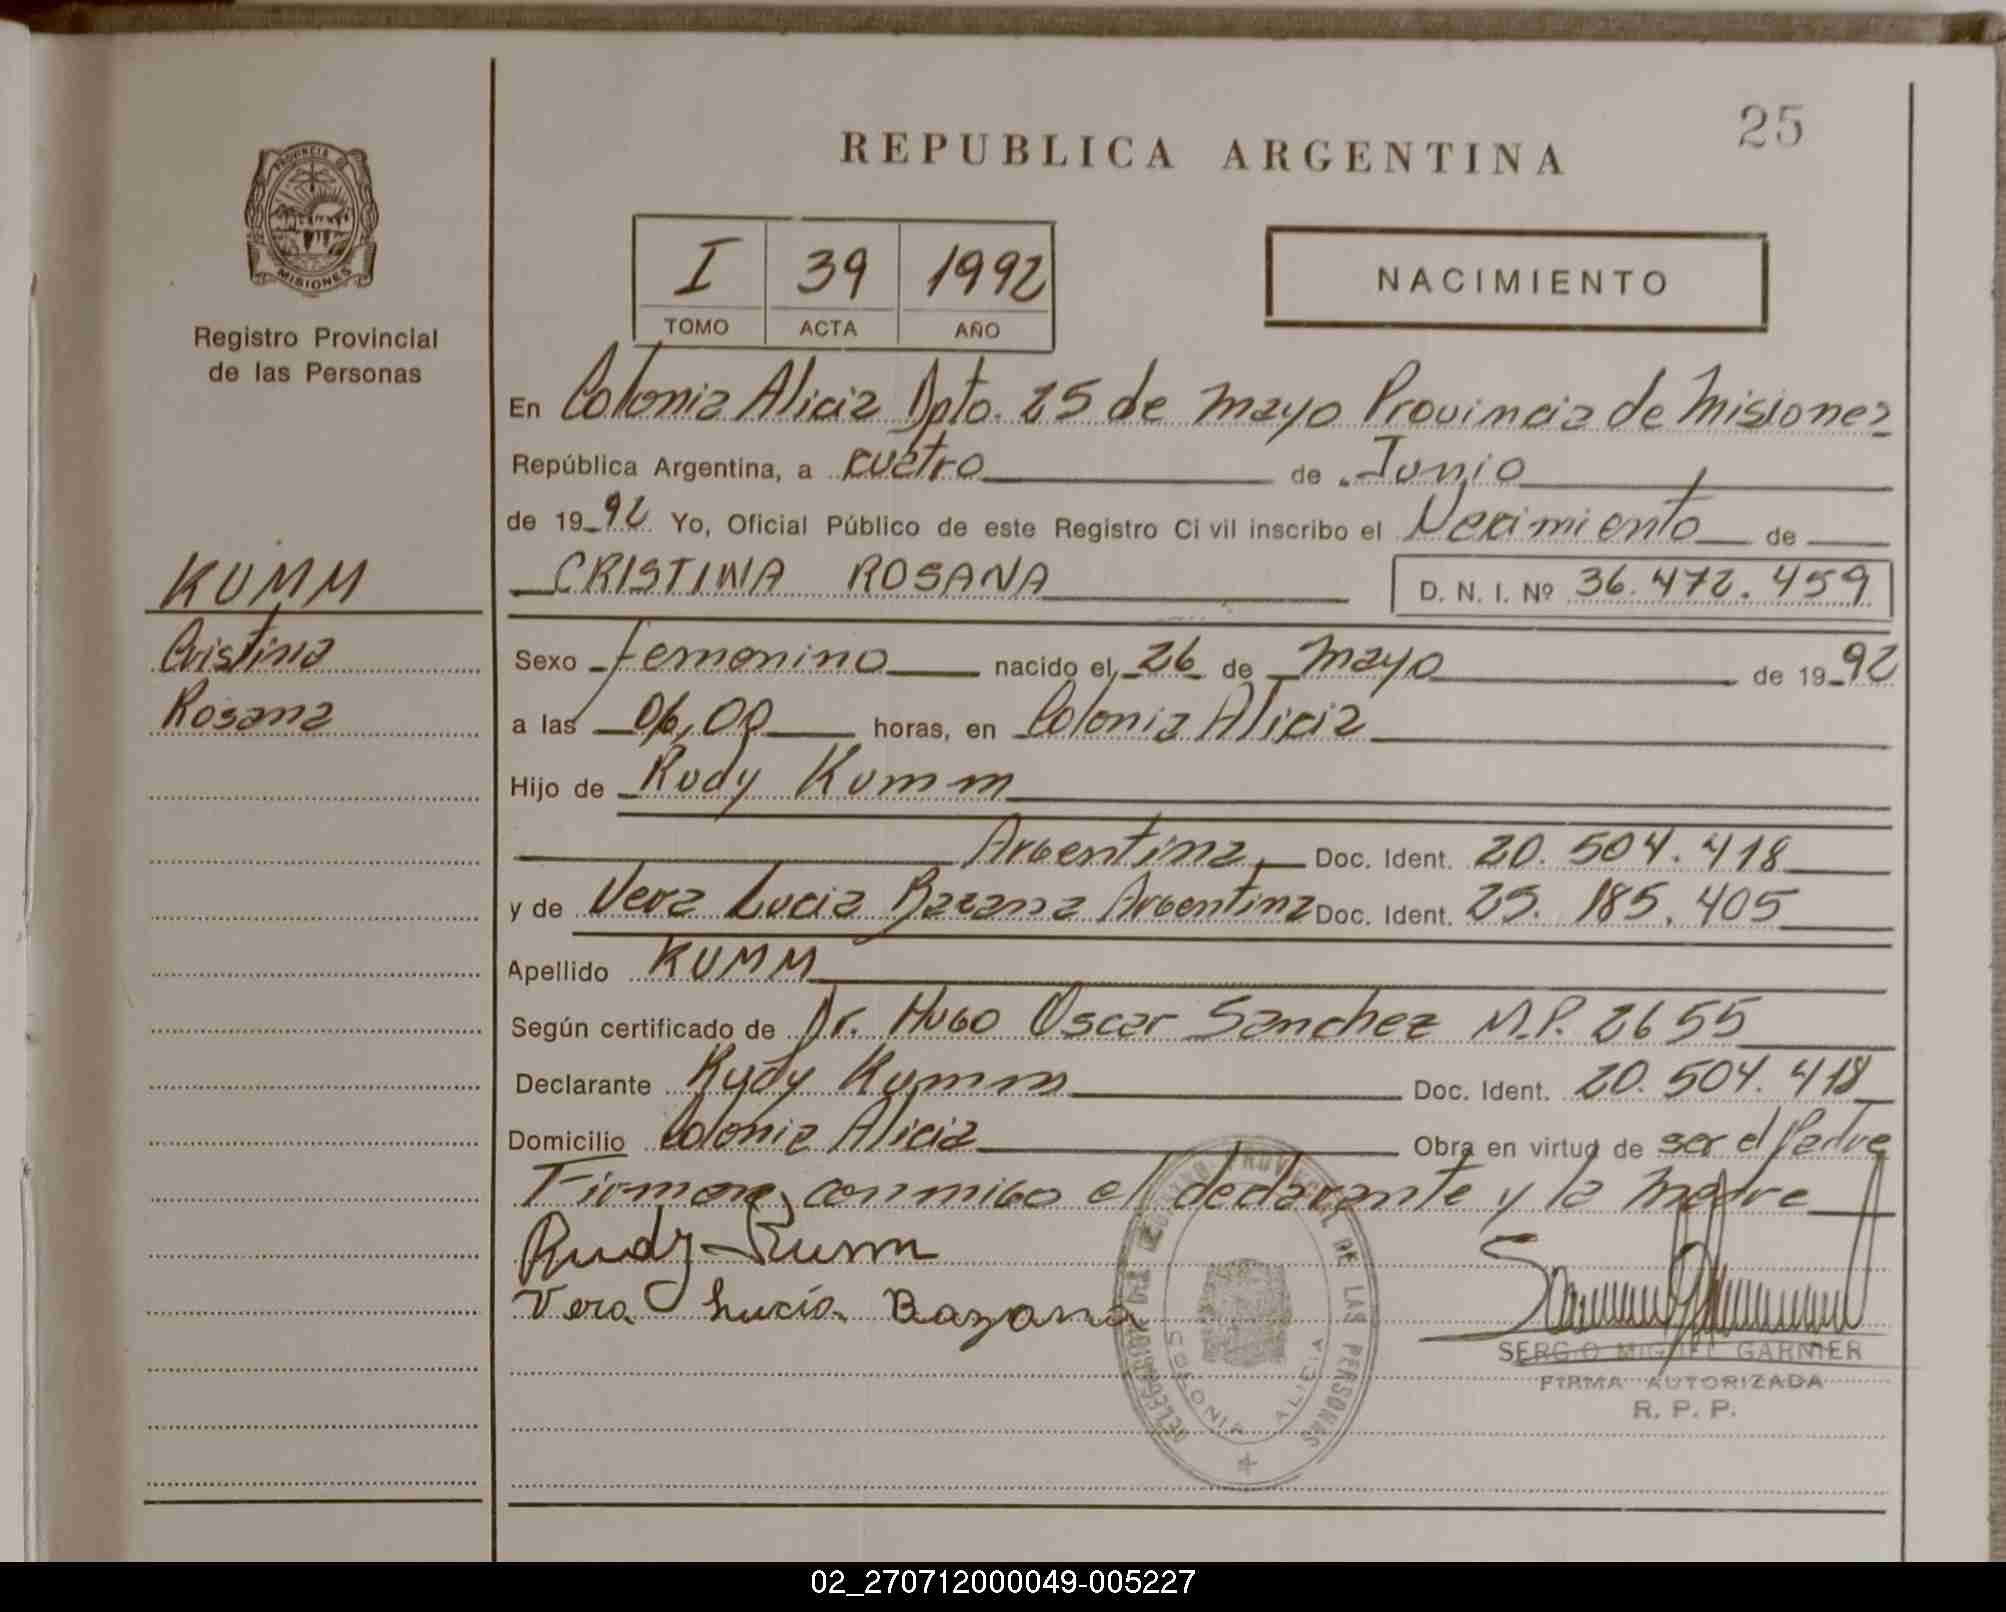 25
REPUBLICA ARGENTINA
PROVINCIA DE
MISIONES
Registro Provincial
de las Personas
I 39 1992
TOMO ACTA AÑO
NACIMIENTO
En Colonia Alicia Dpto. 25 de Mayo Provincia de Misiones
República Argentina, a cuatro de Junio
de 1992 Yo, Oficial Público de este Registro Civil inscribo el Nacimiento de
CRISTINA ROSANA D. N. I. Nº 36.472.459
KUMM
Cristina
Rosana
Sexo femenino nacido el 26 de Mayo de 1992
a las 06,00 horas, en Colonia Alicia
Hijo de Rudy Kumm
Argentina Doc. Ident. 20.504.418
y de Vera Lucia Bazana Argentina Doc. Ident. 25.185.405
Apellido KUMM
Según certificado de Dr. Hugo Oscar Sanchez M.P. 2655
Declarante Rudy Kumm Doc. Ident. 20.504.418
Domicilio Colonia Alicia Obra en virtud de ser el Padre
Firman conmigo el declarante y la Madre
Rudy Kumm
Vera Lucía Bazana
DE LAS PERSONAS
COLONIA ALICIA
SERGIO MIGUEL GARNIER
FIRMA AUTORIZADA
R. P. P.
02_270712000049-005227